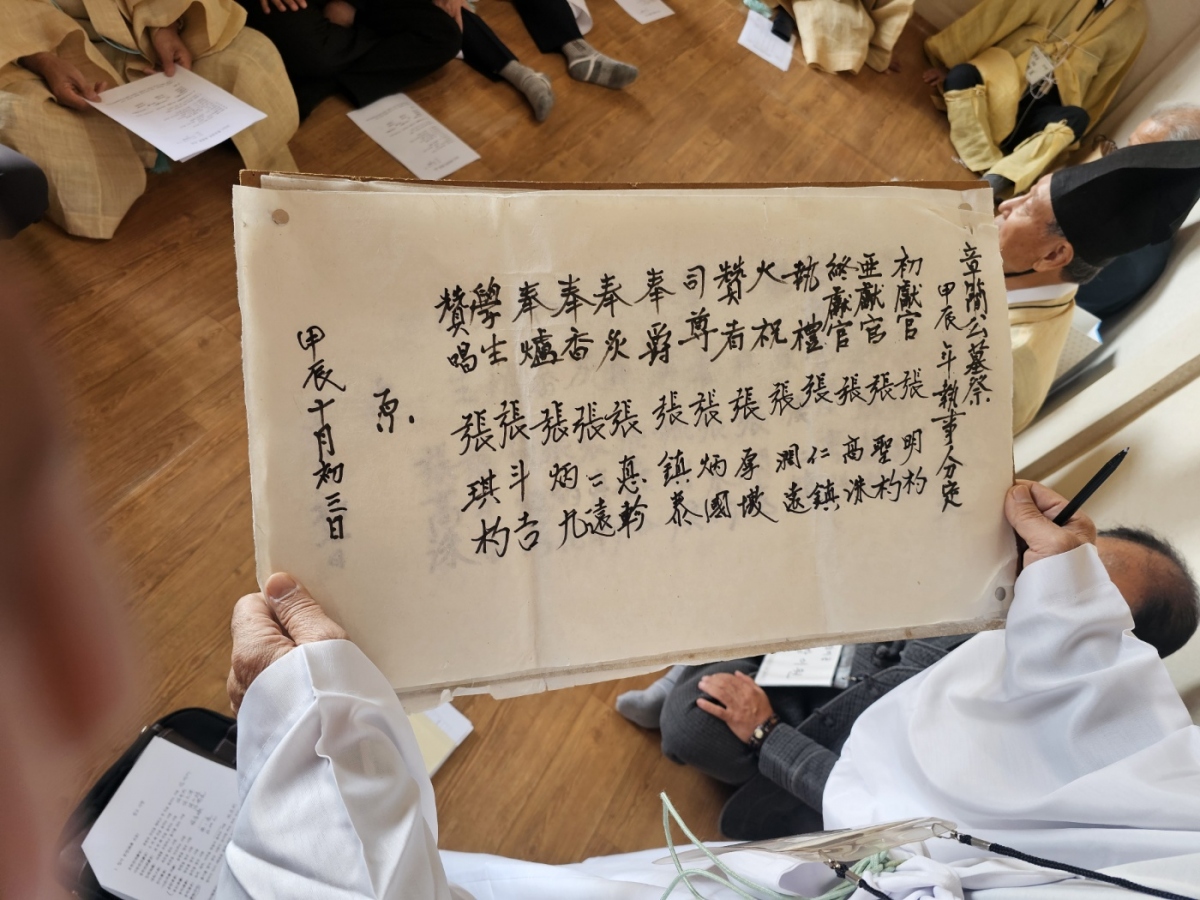 章簡公墓祭
甲辰年執事分定
初獻官 張明杓
亜獻官 張聖杓
終獻官 張高洙
執禮 張仁鎮
大祝 張潤遠
贊者 張厚墩
司尊 張炳國
奉爵 張鎮泰
奉炙 張 幹
奉香 張 遠
奉爐 張炳九
學生 張斗吉
贊唱 張琪杓
甲辰十月初三日